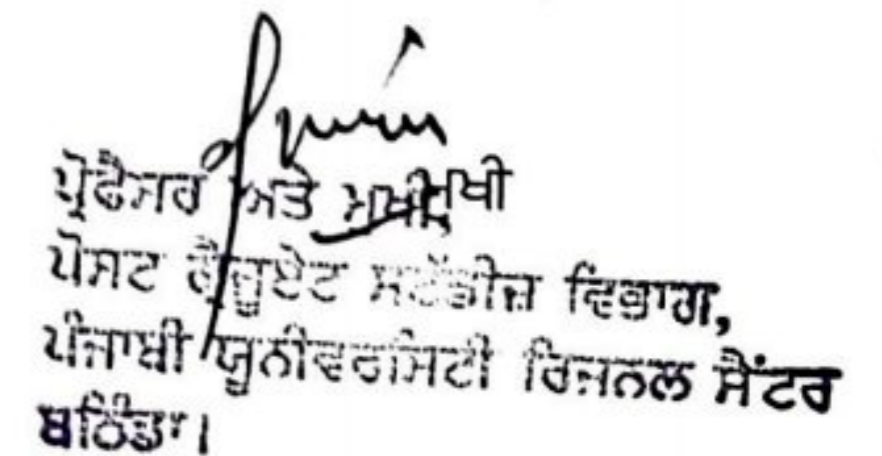 ਪ੍ਰੋਫੈਸਰ ਅਤੇ ਮੁਖੀ ਮੁਖੀ
ਪੋਸਟ ਗ੍ਰੈਜੂਏਟ ਸਟੱਡੀਜ਼ ਵਿਭਾਗ,
ਪੰਜਾਬੀ ਯੂਨੀਵਰਸਿਟੀ ਰਿਜਨਲ ਸੈਂਟਰ
ਬਠਿੰਡਾ।